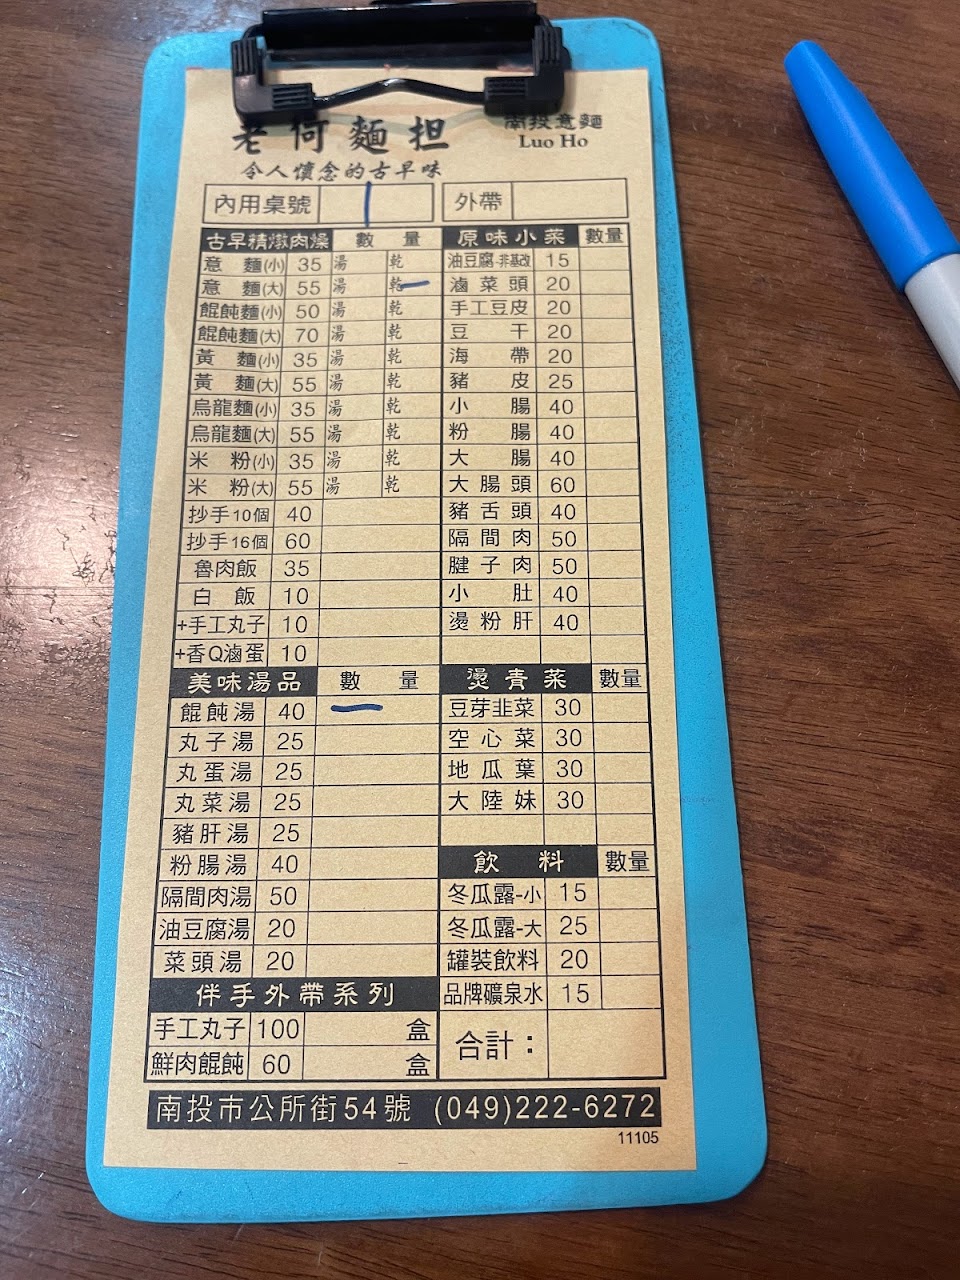 老何麵担
南投意麵
Luo Ho
令人懷念的古早味
內用桌號 | 外帶
古早精燉肉燥 數量
意麵(小) 35 湯 乾
意麵(大) 55 湯 乾 一
餛飩麵(小) 50 湯 乾
餛飩麵(大) 70 湯 乾
黃麵(小) 35 湯 乾
黃麵(大) 55 湯 乾
烏龍麵(小) 35 湯 乾
烏龍麵(大) 55 湯 乾
米粉(小) 35 湯 乾
米粉(大) 55 湯 乾
抄手10個 40
抄手16個 60
魯肉飯 35
白飯 10
+手工丸子 10
+香Q滷蛋 10
美味湯品 數量
餛飩湯 40 一
丸子湯 25
丸蛋湯 25
丸菜湯 25
豬肝湯 25
粉腸湯 40
隔間肉湯 50
油豆腐湯 20
菜頭湯 20
伴手外帶系列
手工丸子 100 盒
鮮肉餛飩 60 盒
原味小菜 數量
油豆腐-非基改 15
滷菜頭 20
手工豆皮 20
豆干 20
海帶 20
豬皮 25
小腸 40
粉腸 40
大腸 40
大腸頭 60
豬舌頭 40
隔間肉 50
腱子肉 50
小肚 40
燙粉肝 40
燙青菜 數量
豆芽韭菜 30
空心菜 30
地瓜葉 30
大陸妹 30
飲料 數量
冬瓜露-小 15
冬瓜露-大 25
罐裝飲料 20
品牌礦泉水 15
合計：
南投市公所街54號 (049)222-6272
11105